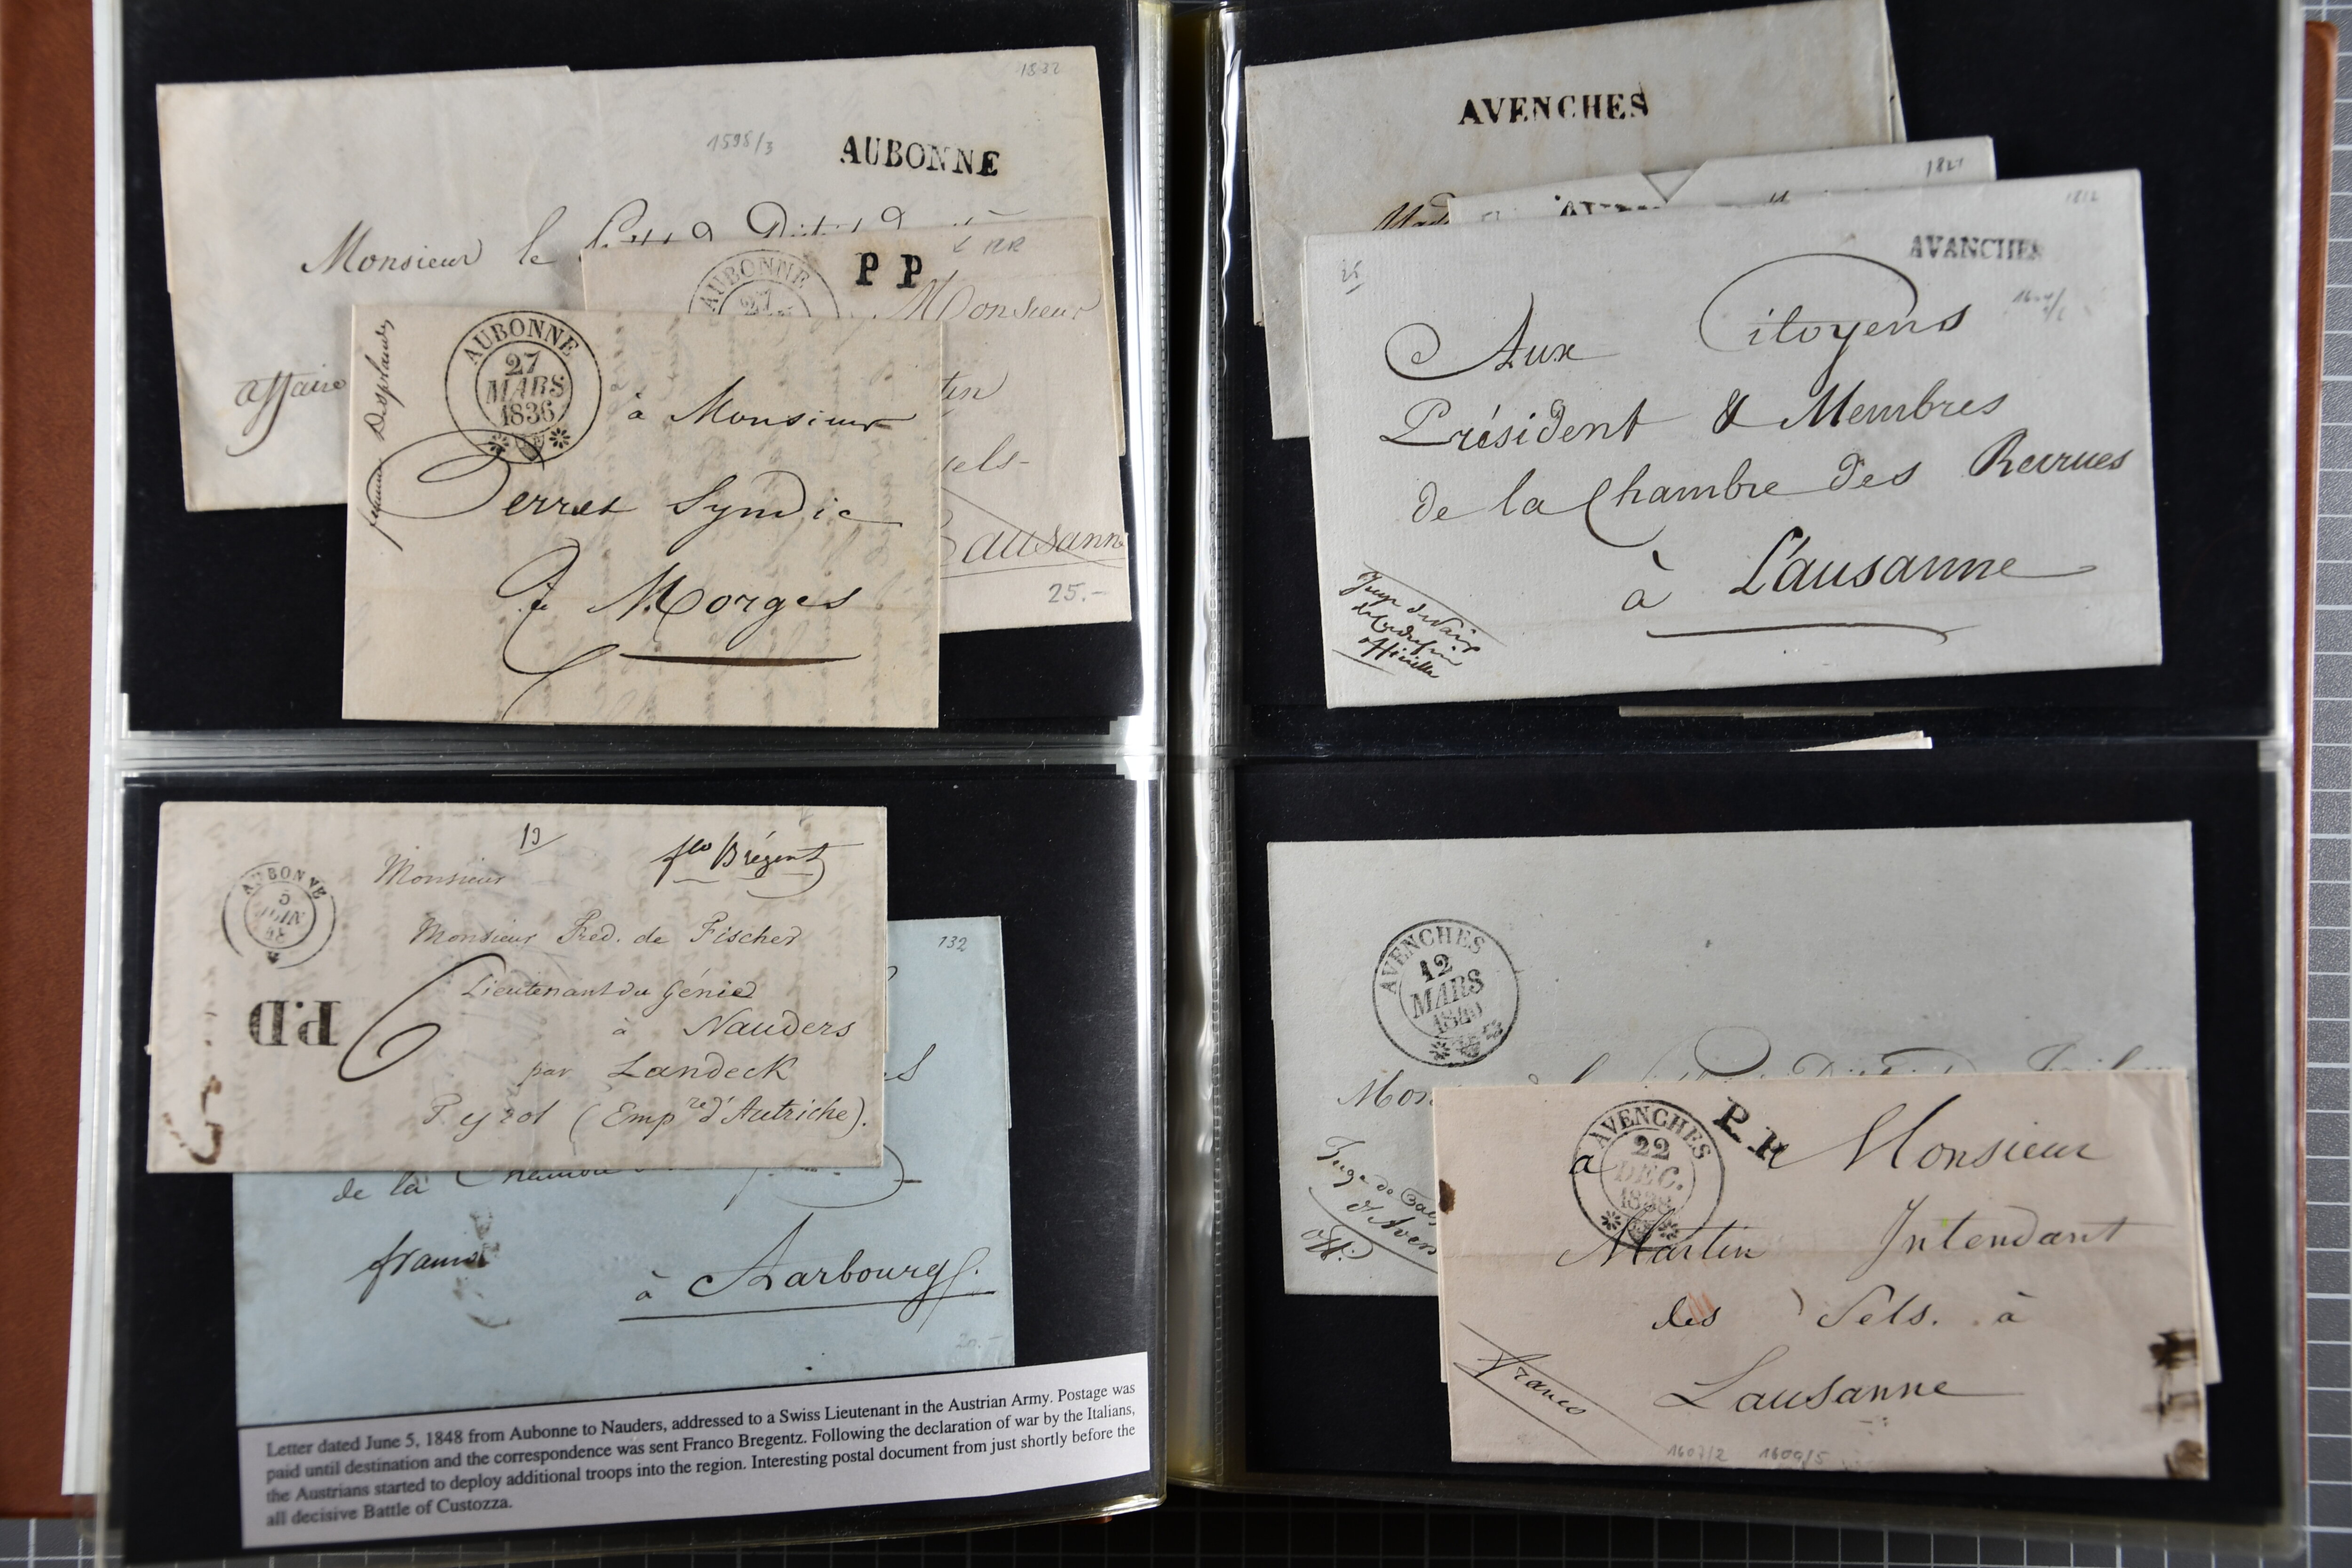 1832
1598/3
AUBONNE
Monsieur le
affaire
RR
AUBONNE
27
P P
Monsieur
Lausanne
25.-
AUBONNE
27
MARS
1836
à Monsieur
Perret Syndic
à Morges
AVENCHES
1821
1812
AVANCHES
25
Aux Citoyens
Président & Membres
de la Chambre des Recrues
à Lausanne
13
Monsieur
fco Brégent
AUBONNE
5
JUIN
48
Monsieur Fréd. de Fischer
Lieutenant du Génie
à Nauders
par Landeck
Tyrol (Empre d'Autriche).
P.D
132
de la Chambre
franco
à Aarbourg.
20.-
Letter dated June 5, 1848 from Aubonne to Nauders, addressed to a Swiss Lieutenant in the Austrian Army. Postage was
paid until destination and the correspondence was sent Franco Bregentz. Following the declaration of war by the Italians,
the Austrians started to deploy additional troops into the region. Interesting postal document from just shortly before the
all decisive Battle of Custozza.
AVENCHES
12
MARS
1840
Juge de Paix
d'Aven
Off.
AVENCHES
22
DEC.
1838
P. P.
à Monsieur
Martin Intendant
des Sels. à
Lausanne
Franco
1607/2 1609/5